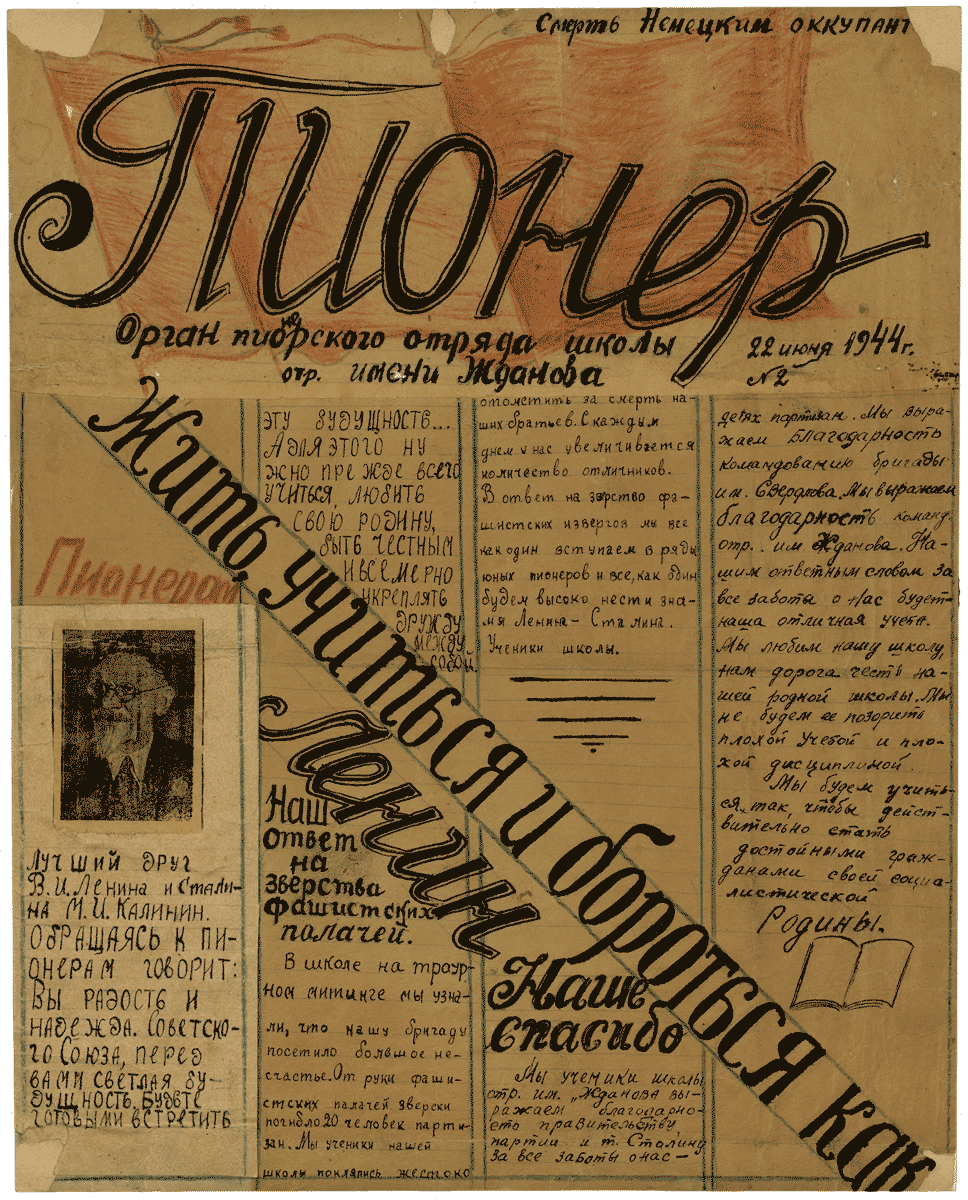 Смерть Немецким оккупант
Пионер
Орган пионерского отряда школы
отр. имени Жданова
22 июня 1944 г.
№2
Жить, учиться и бороться как
Ленин
Пионерам
Лучший друг
В.И. Ленина и Стали-
на М.И. Калинин.
Обращаясь к пи-
онерам говорит:
Вы радость и
надежда. Советско-
го Союза, перед
вами светлая бу-
дущность. Будьте
готовыми встретить
эту будущность...
А для этого ну-
жно прежде всего
учиться, любить
свою родину,
быть честным
и всемерно
укреплять
дружбу
между
собой.
Наш
ответ
на
зверства
фашистских
палачей.
В школе на траур-
ном митинге мы узна-
ли, что нашу бригаду
посетило большое не-
счастье. От руки фаши-
стских палачей зверски
погибло 20 человек парти-
зан. Мы ученики нашей
школы поклялись жестоко
отометить за смерть на-
ших братьев. С каждым
днем у нас увеличивается
количество отличников.
В ответ на зврство фа-
шистских извергов мы все
как один вступаем в ряды
юных пионеров и все, как один
будем высоко нести зна-
мя Ленина - Сталина.
Ученики школы.
Наше
спасибо
Мы ученики школы
отр. им. „Жданова вы-
ражаем благодарно-
сть правительству,
партии и т. Сталину
за все заботы о нас —
детях партизан. Мы выра-
жаем благодарность
командованию бригады
им. Свердлова. Мы выражаем
благодарность команд.
отр. им Жданова. На-
шим ответным словом за
все заботы о нас будет-
наша отличная учеба.
Мы любим нашу школу,
нам дорога честь на-
шей родной школы. Мы
не будем ее позорить
плохой учебой и пло-
хой дисциплиной.
Мы будем учить-
ся так, чтобы дейст-
вительно стать
достойными граж-
данами своей социа-
листической
Родины.